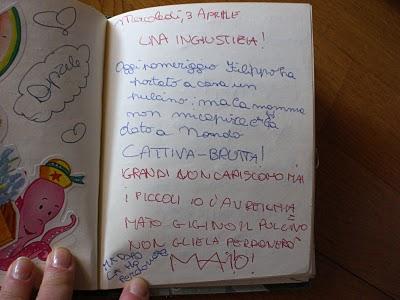 Aprile
Mercoledì, 3 APRILE
UNA INGIUSTIZIA!
Oggi pomeriggio Filippo ha
portato a casa un
pulcino; ma la mamma
non mi capisce e l'ha
dato a Nando
CATTIVA-BRUTTA!
I GRANDI NON CAPISCONO MAI
I PICCOLI IO L'AVREI CHIA
MATO GIGINO IL PULCINO
NON GLIELA PERDONERÒ
MAIO!
MA DOPO
LA HO
PERDONATA